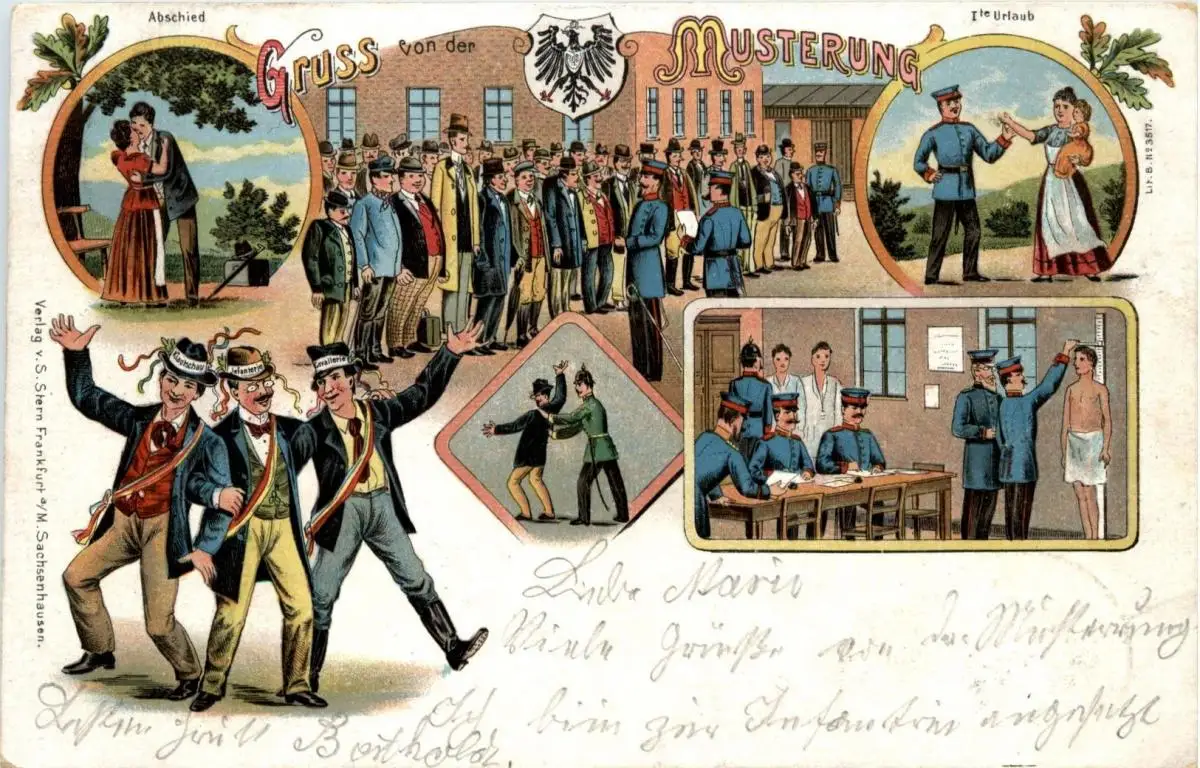 Abschied
Gruss von der Musterung
Ite Urlaub
Lit. B. No 3517.
Infanterie
Cavallerie
Verlag v. S. Stern Frankfurt a/M. Sachsenhausen.
Liebe Marie
Viele Grüße von der Musterung
Ich bin zur Infantrie angesetzt
Besten Gruß Berthold.